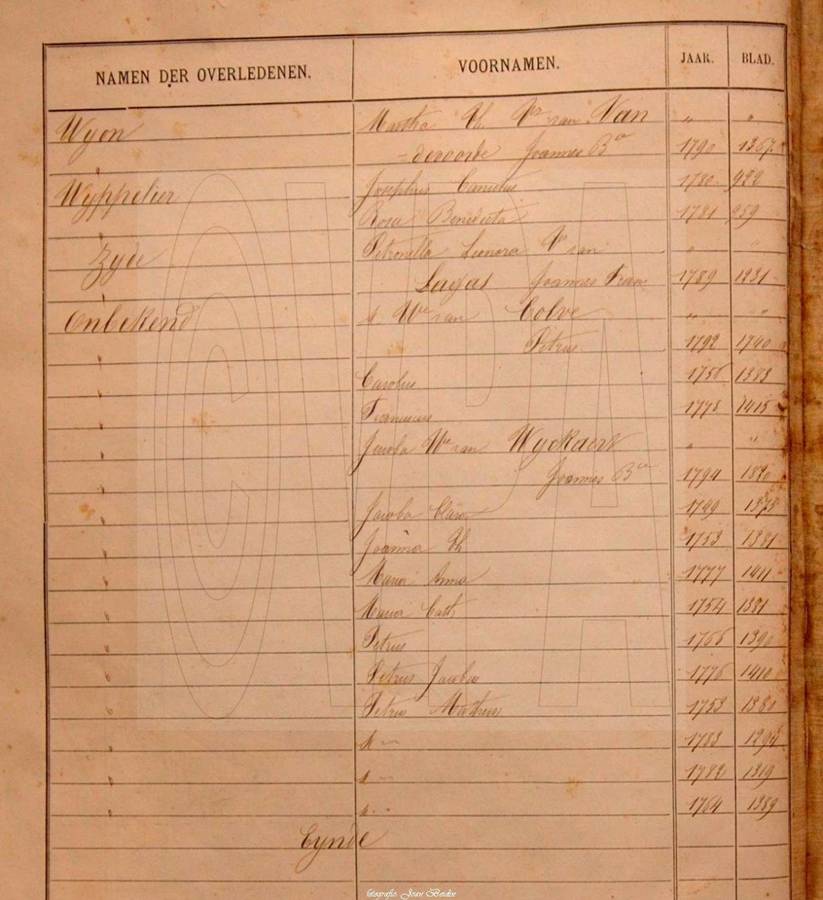 NAMEN DER OVERLEDENEN. VOORNAMEN. JAAR. BLAD.
Wyon Martha Th. We van Van " "
" - devoorde Joannes Bta 1790 1367
Wyppelier Josephus Camilus 1780 922
" Rosa Benedicta 1781 959
Zyde Petronella Leonora We van " "
" Lagas Joannes Fran 1789 1231
Onbekend n We van Colve " "
" Petrus 1792 1740
" Carolus 1756 1383
" Franciscus 1778 1415
" Jacoba We van Wyckaert " "
" Joannes Bta 1794 1820
" Jacoba Clara 1749 1375
" Joanna Th. 1753 1381
" Maria Anna 1777 1411
" Maria Cath. 1754 1381
" Petrus 1766 1390
" Petrus Jacobus 1776 1410
" Petrus Matheus 1753 1380
" n 1783 1294
" n 1782 1319
" n 1764 1389
Eynde
CMPA
fotografie Joan Berdin